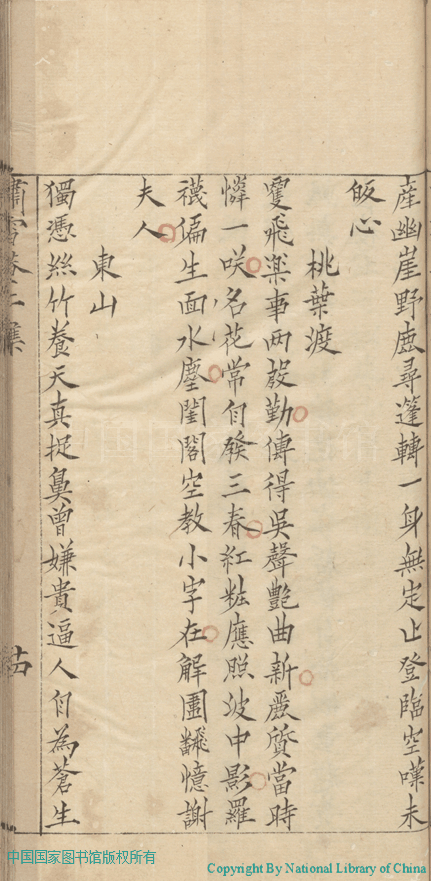 産幽崖野鹿尋蓬轉一身無定止登臨空嘆未
皈心
桃葉渡
雙飛樂事两殷勤傳得吳聲艷曲新麗質當時
憐一咲名花常自發三春紅粧應照波中影羅
襪偏生面水塵閨閣空教小字在解圍飜憶謝
夫人
東山
獨憑絲竹養天真捉鼻曾嫌貴逼人自為蒼生
中国国家图书馆版权所有
Copyright By National Library of China